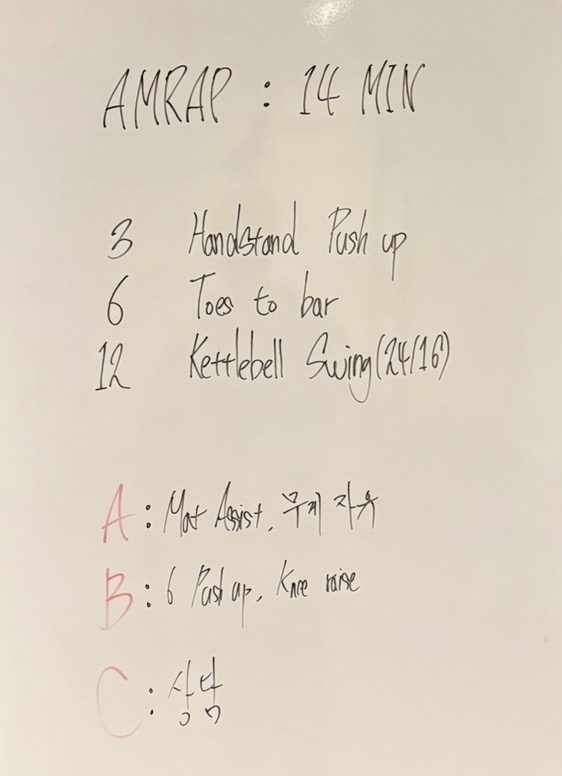 AMRAP : 14 MIN
3 Handstand Push up
6 Toes to bar
12 Kettlebell Swing(24/16)
A : Mat Assist, 무게 자유
B : 6 Push up, Knee raise
C : 상담